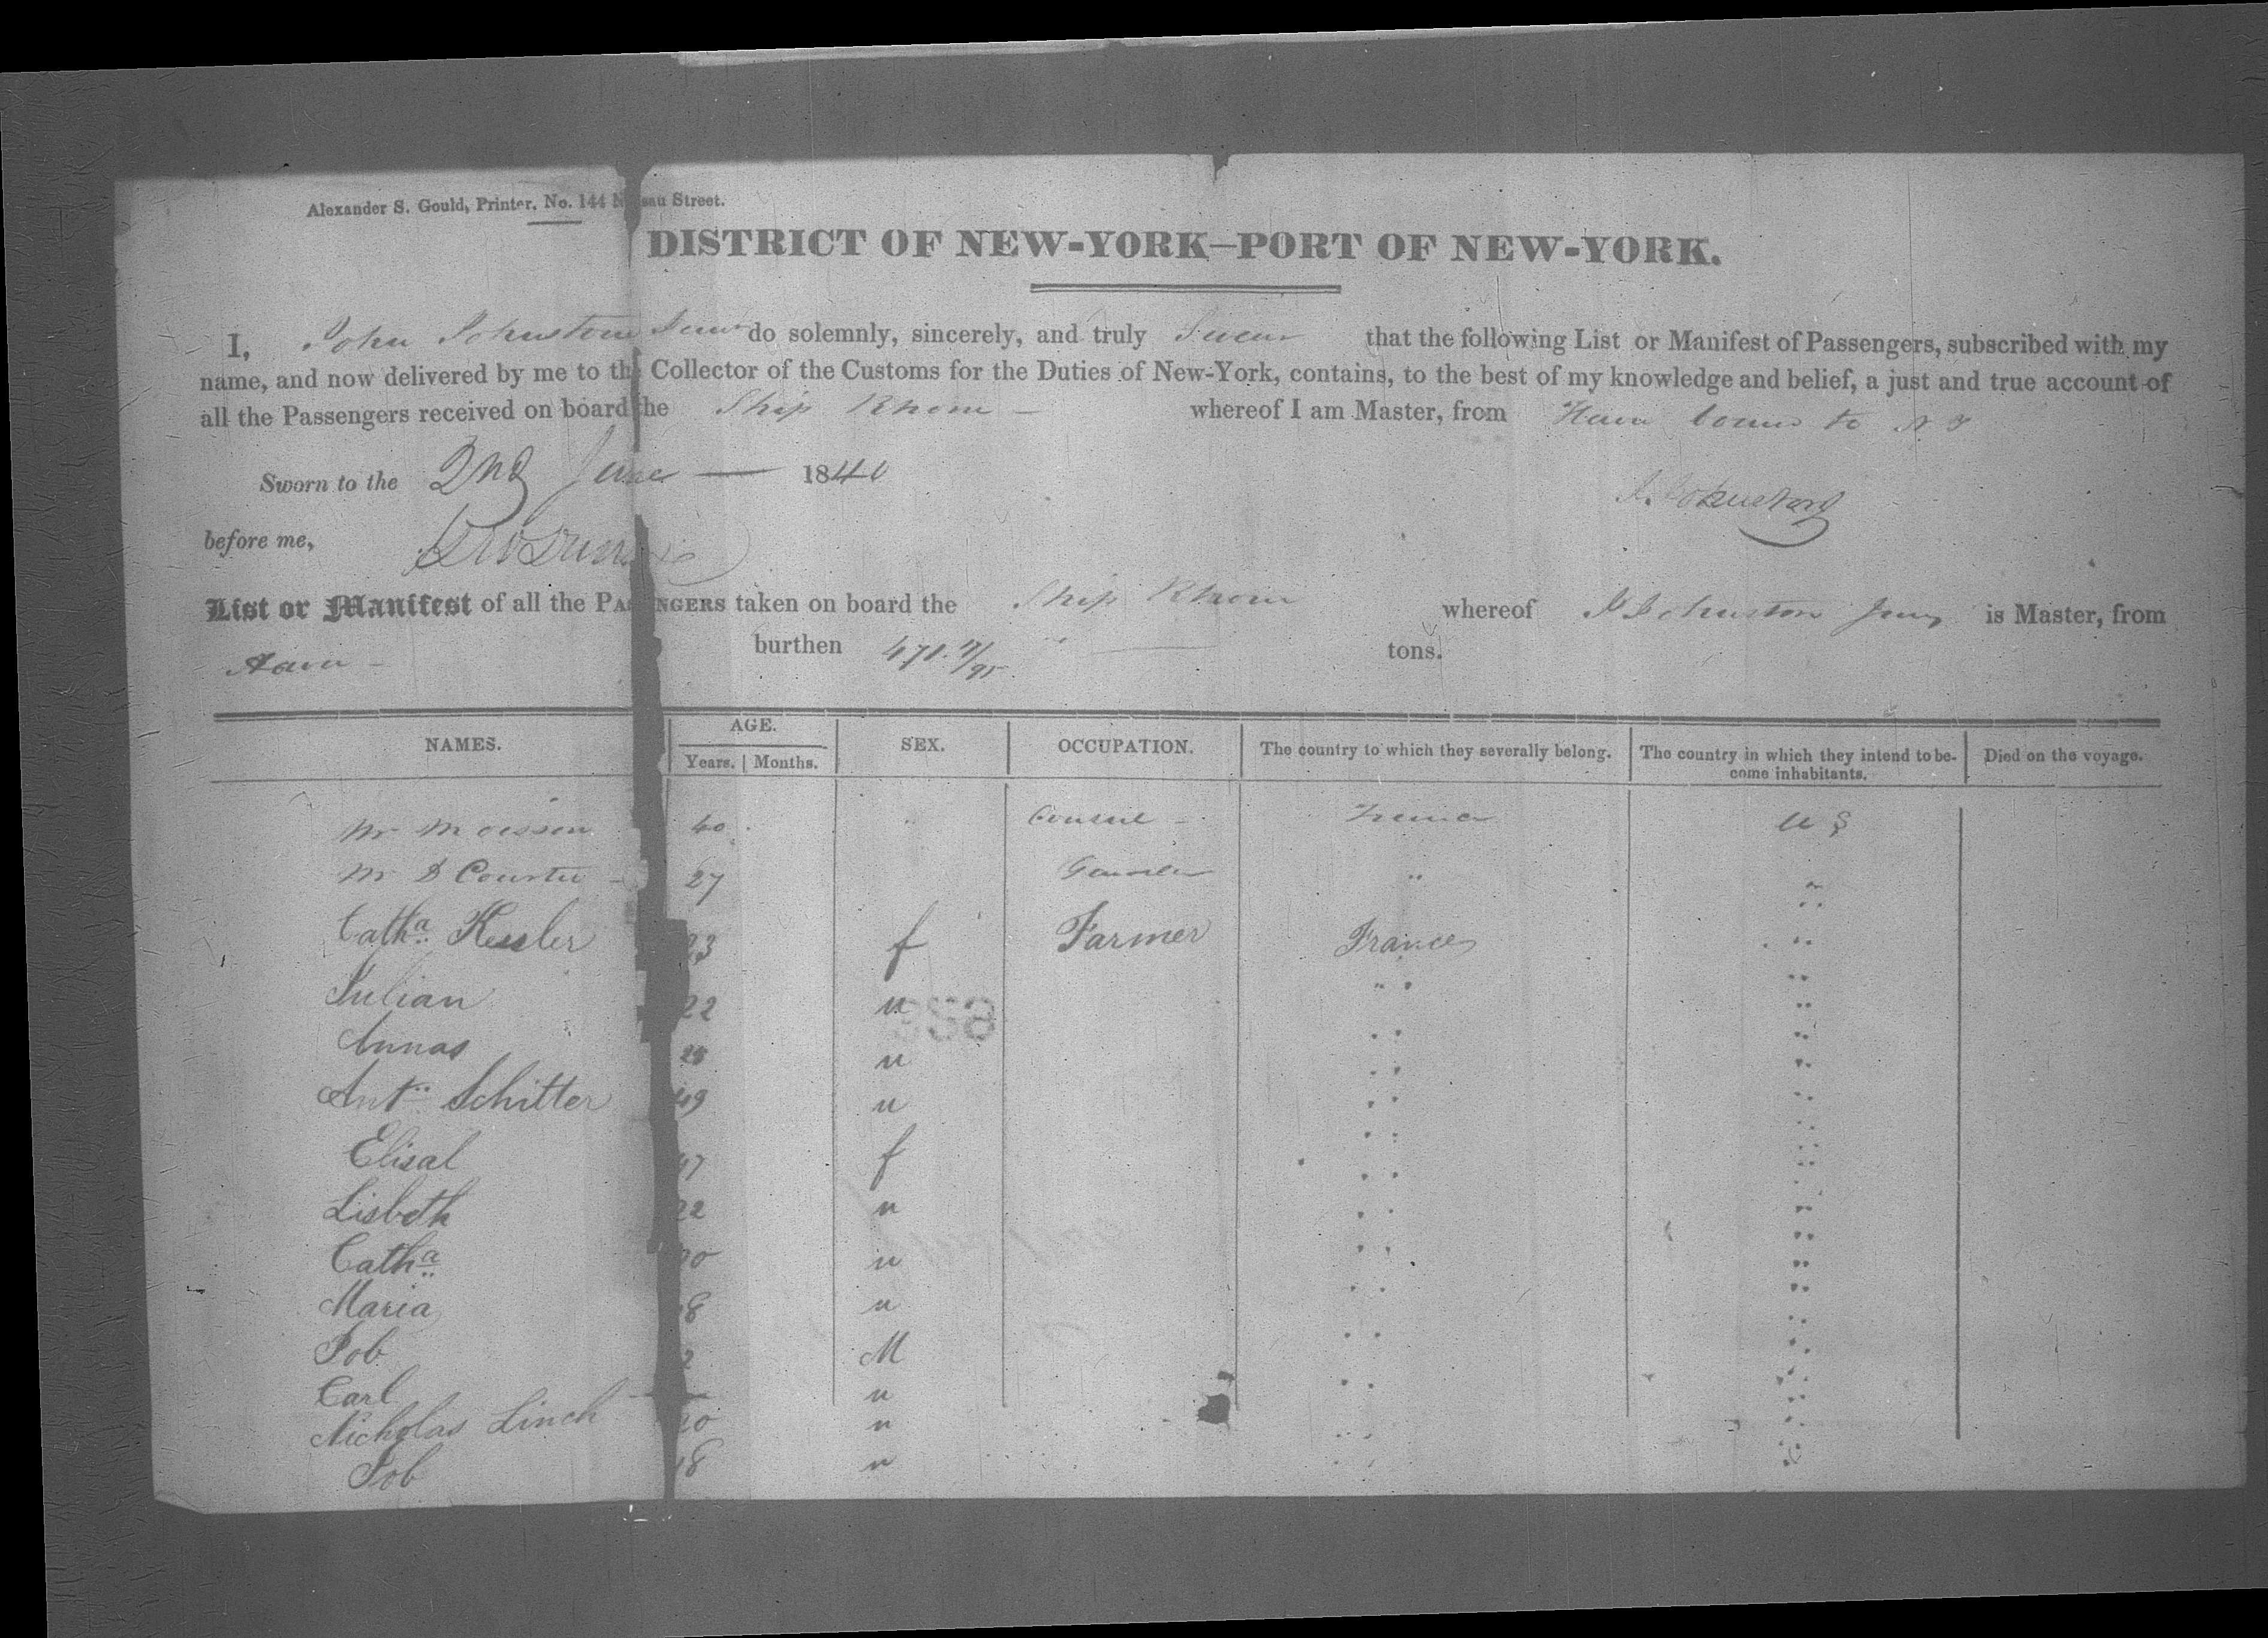 Alexander S. Gould, Printer, No. 144 N sau Street.
DISTRICT OF NEW-YORK—PORT OF NEW-YORK.
I, John Johnston Junr do solemnly, sincerely, and truly Swear that the following List or Manifest of Passengers, subscribed with my
name, and now delivered by me to the Collector of the Customs for the Duties of New-York, contains, to the best of my knowledge and belief, a just and true account of
all the Passengers received on board the Ship Rhone whereof I am Master, from Havre bound to N Y
Sworn to the 2nd June 1840
J. Johnston
before me,
List or Manifest of all the PA NGERS taken on board the Ship Rhone whereof J Johnston Jun is Master, from
Havre burthen 471. tons.
NAMES. AGE. Years. Months. SEX. OCCUPATION. The country to which they severally belong. The country in which they intend to become inhabitants. Died on the voyage.
Mr 40 Consul France U S
Mr D 27 "
Catha Kessler 23 f Farmer France "
Julian 22 " " "
Annas 25 " " "
Ant Schitter 49 " " "
Elisal 47 f " "
Lisbeth 22 " " "
Catha 20 " " "
Maria 18 " " "
Job 2 M " "
Carl " " "
Nicholas Linch 20 " " "
Job 18 " " "